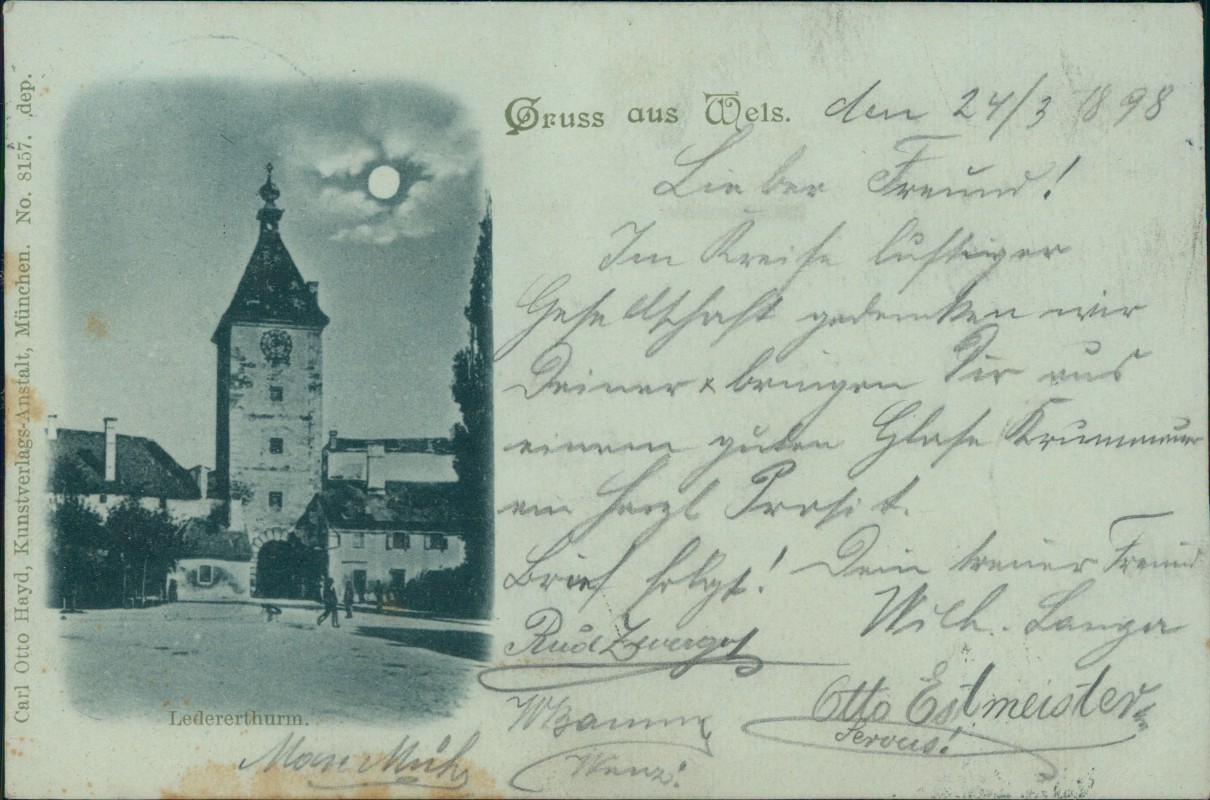 Carl Otto Hayd, Kunstverlags-Anstalt, München. No. 8157. dep.
Gruss aus Wels. den 24/3 1898
Lieber Freund!
Im Kreise lustiger
Gesellschaft gedenken wir
Deiner & bringen Dir aus
einem guten Glase Krummauer
ein herzl Prosit.
Brief folgt! Dein treuer Freund
Wilh. Langer
Rud.
Otto Estmeister
Servus!
Ledererthurm.